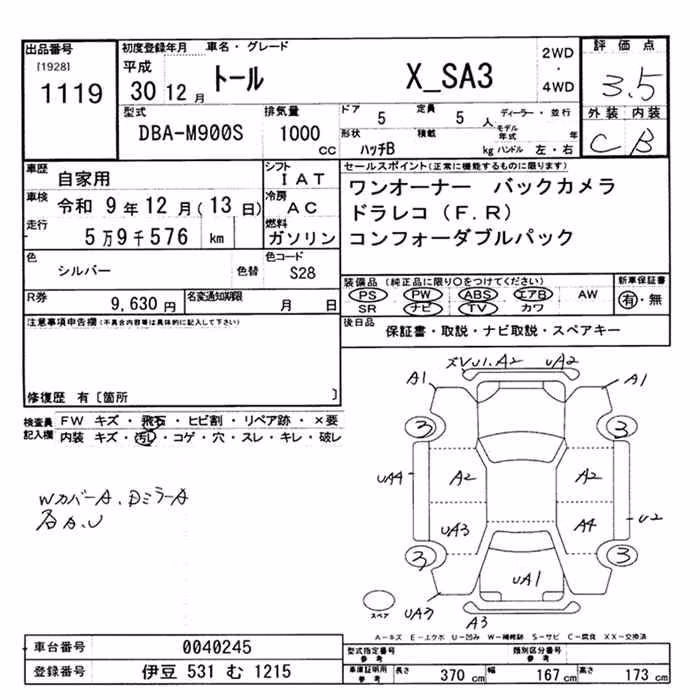 出品番号
[1928]
1119
初度登録年月 車名・グレード
平成
30 12 月
トール X_SA3
2WD
・
4WD
評価点
3.5
外装 内装
C B
型式
DBA-M900S
排気量
1000
cc
ドア 5 定員 5 人 ディーラー・並行
モデル年式 年
形状 ハッチB 積載 kg ハンドル 左・右
車歴 自家用
車検 令和 9 年 12 月(13 日)
走行 5万9千576 km
シフト IAT
冷房 AC
燃料 ガソリン
色 シルバー 色替
色コード S28
R券 9,630 円 名変通知期限 月 日
セールスポイント(正常に機能するものに限ります)
ワンオーナー バックカメラ
ドラレコ(F.R)
コンフォーダブルパック
装備品(純正品に限り○をつけてください) 新車保証書
PS PW ABS エアB AW
SR ナビ TV カワ
有・無
後日品 保証書・取説・ナビ取説・スペアキー
注意事項申告欄(不具合内容等は具体的に記入して下さい)
修復歴 有〔箇所 〕
検査員記入欄
FW キズ・飛石・ヒビ割・リペア跡・×要
内装 キズ・汚し・コゲ・穴・スレ・キレ・破レ
WカバーA、DミラーA
各A、U
ズVU1、A2 UA2
A1 A1
3 3
UA4 A2 A2
UA3 A4 U2
3 3
UA1
UA2 A3
スペア
A-キズ E-エクボ U-凹み W-補修跡 S-サビ C-腐食 XX-交換済
車台番号 0040245
登録番号 伊豆 531 む 1215
型式指定番号 参考 類別区分番号 参考
車庫証明用 参考 長さ 370 cm 幅 167 cm 高さ 173 cm